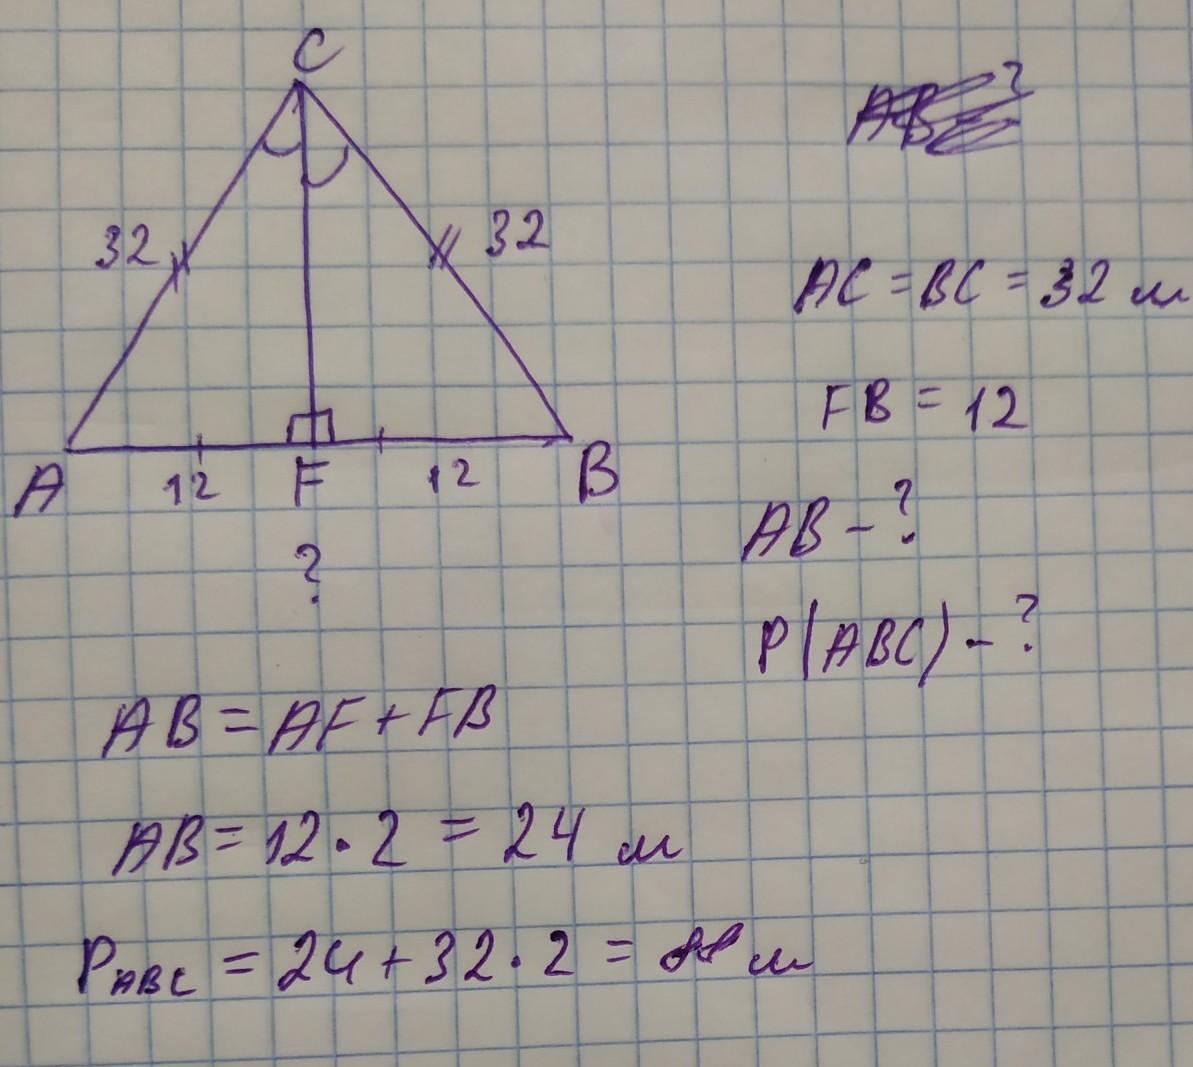 C
32
32
A
12
F
12
B
?
AC = BC = 32 м
FB = 12
AB - ?
P(ABC) - ?
AB = AF + FB
AB = 12 · 2 = 24 м
PABC = 24 + 32 · 2 = 88 м